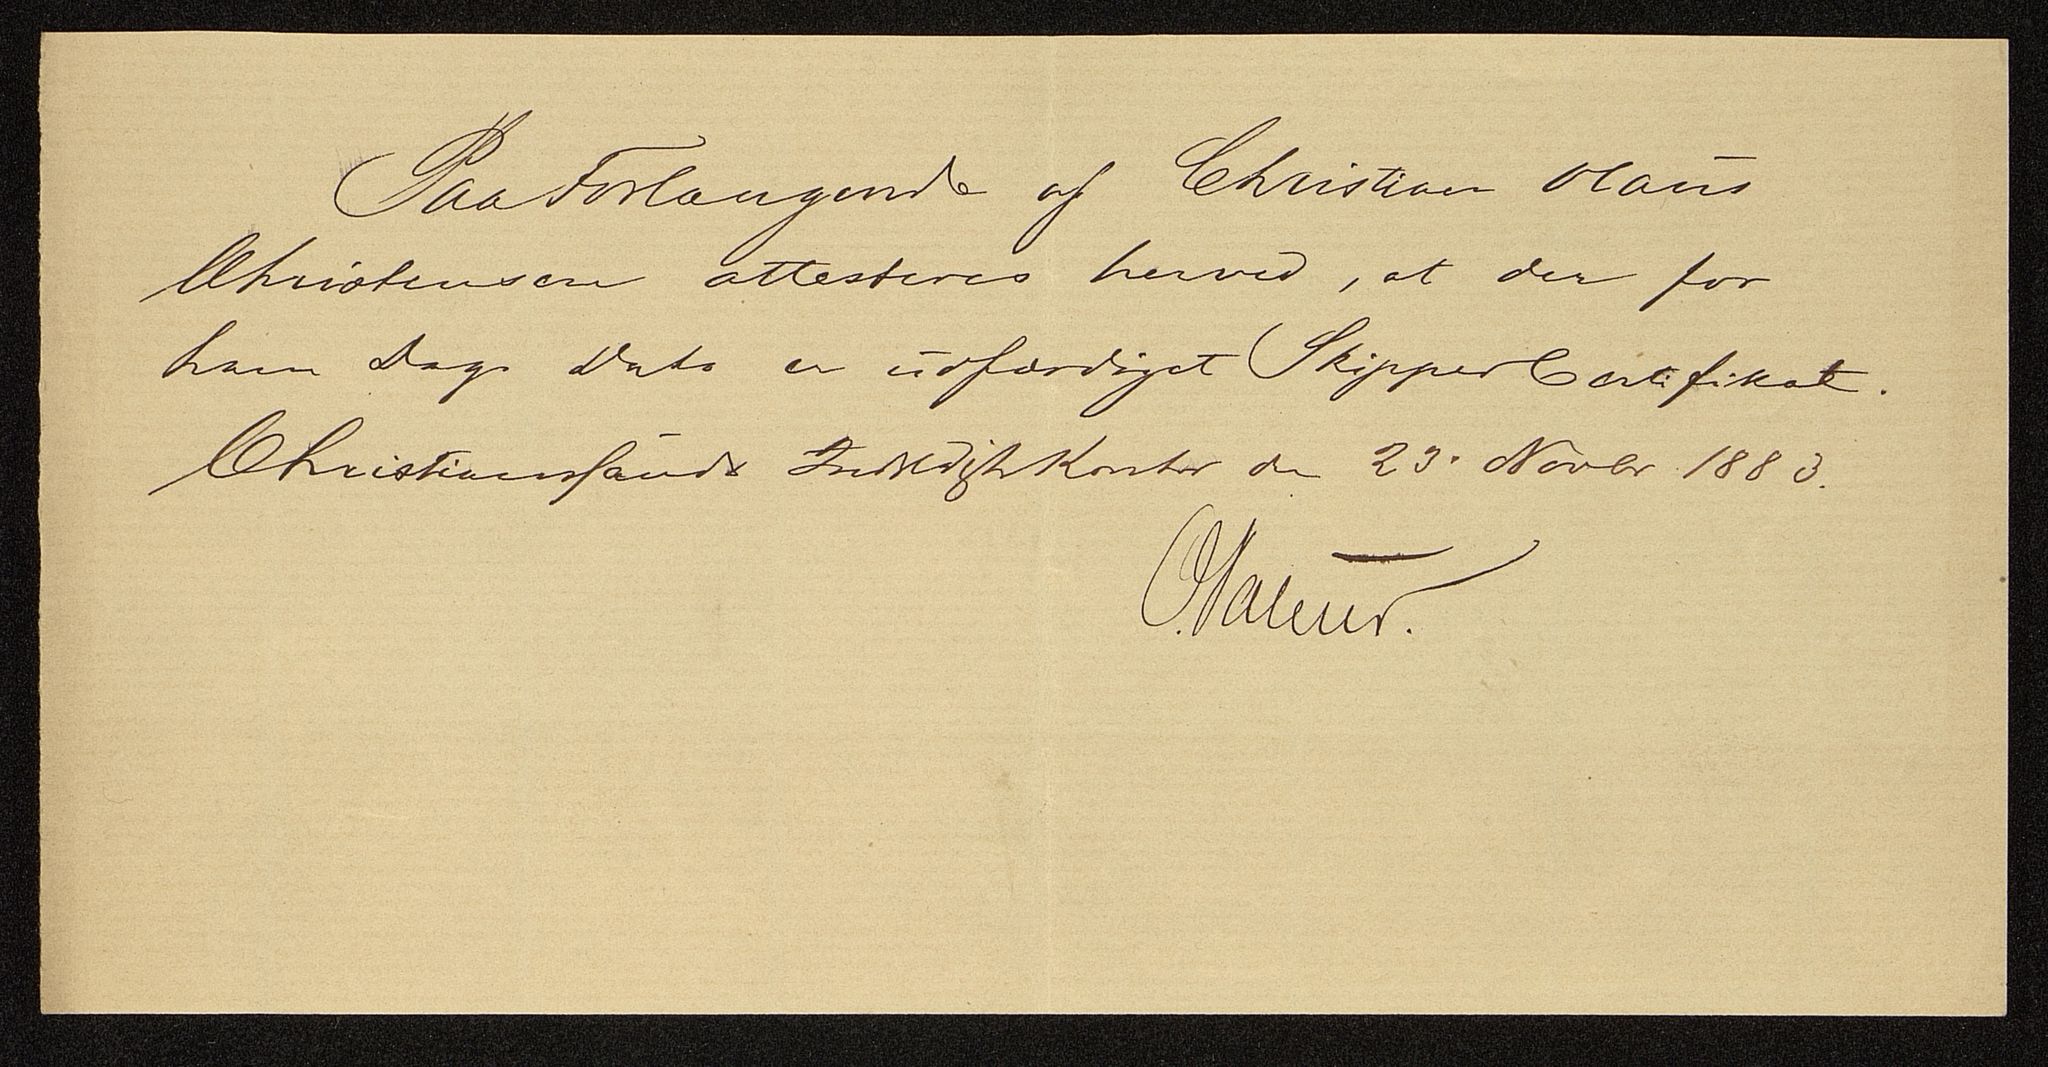 Paa Forlangende af Christian Olaus
Christensen attesteres herved, at der for
ham Dags Dato er udfærdiget Skipper Certifikat.
Christianssands Kontor den 23. Novbr 1883.